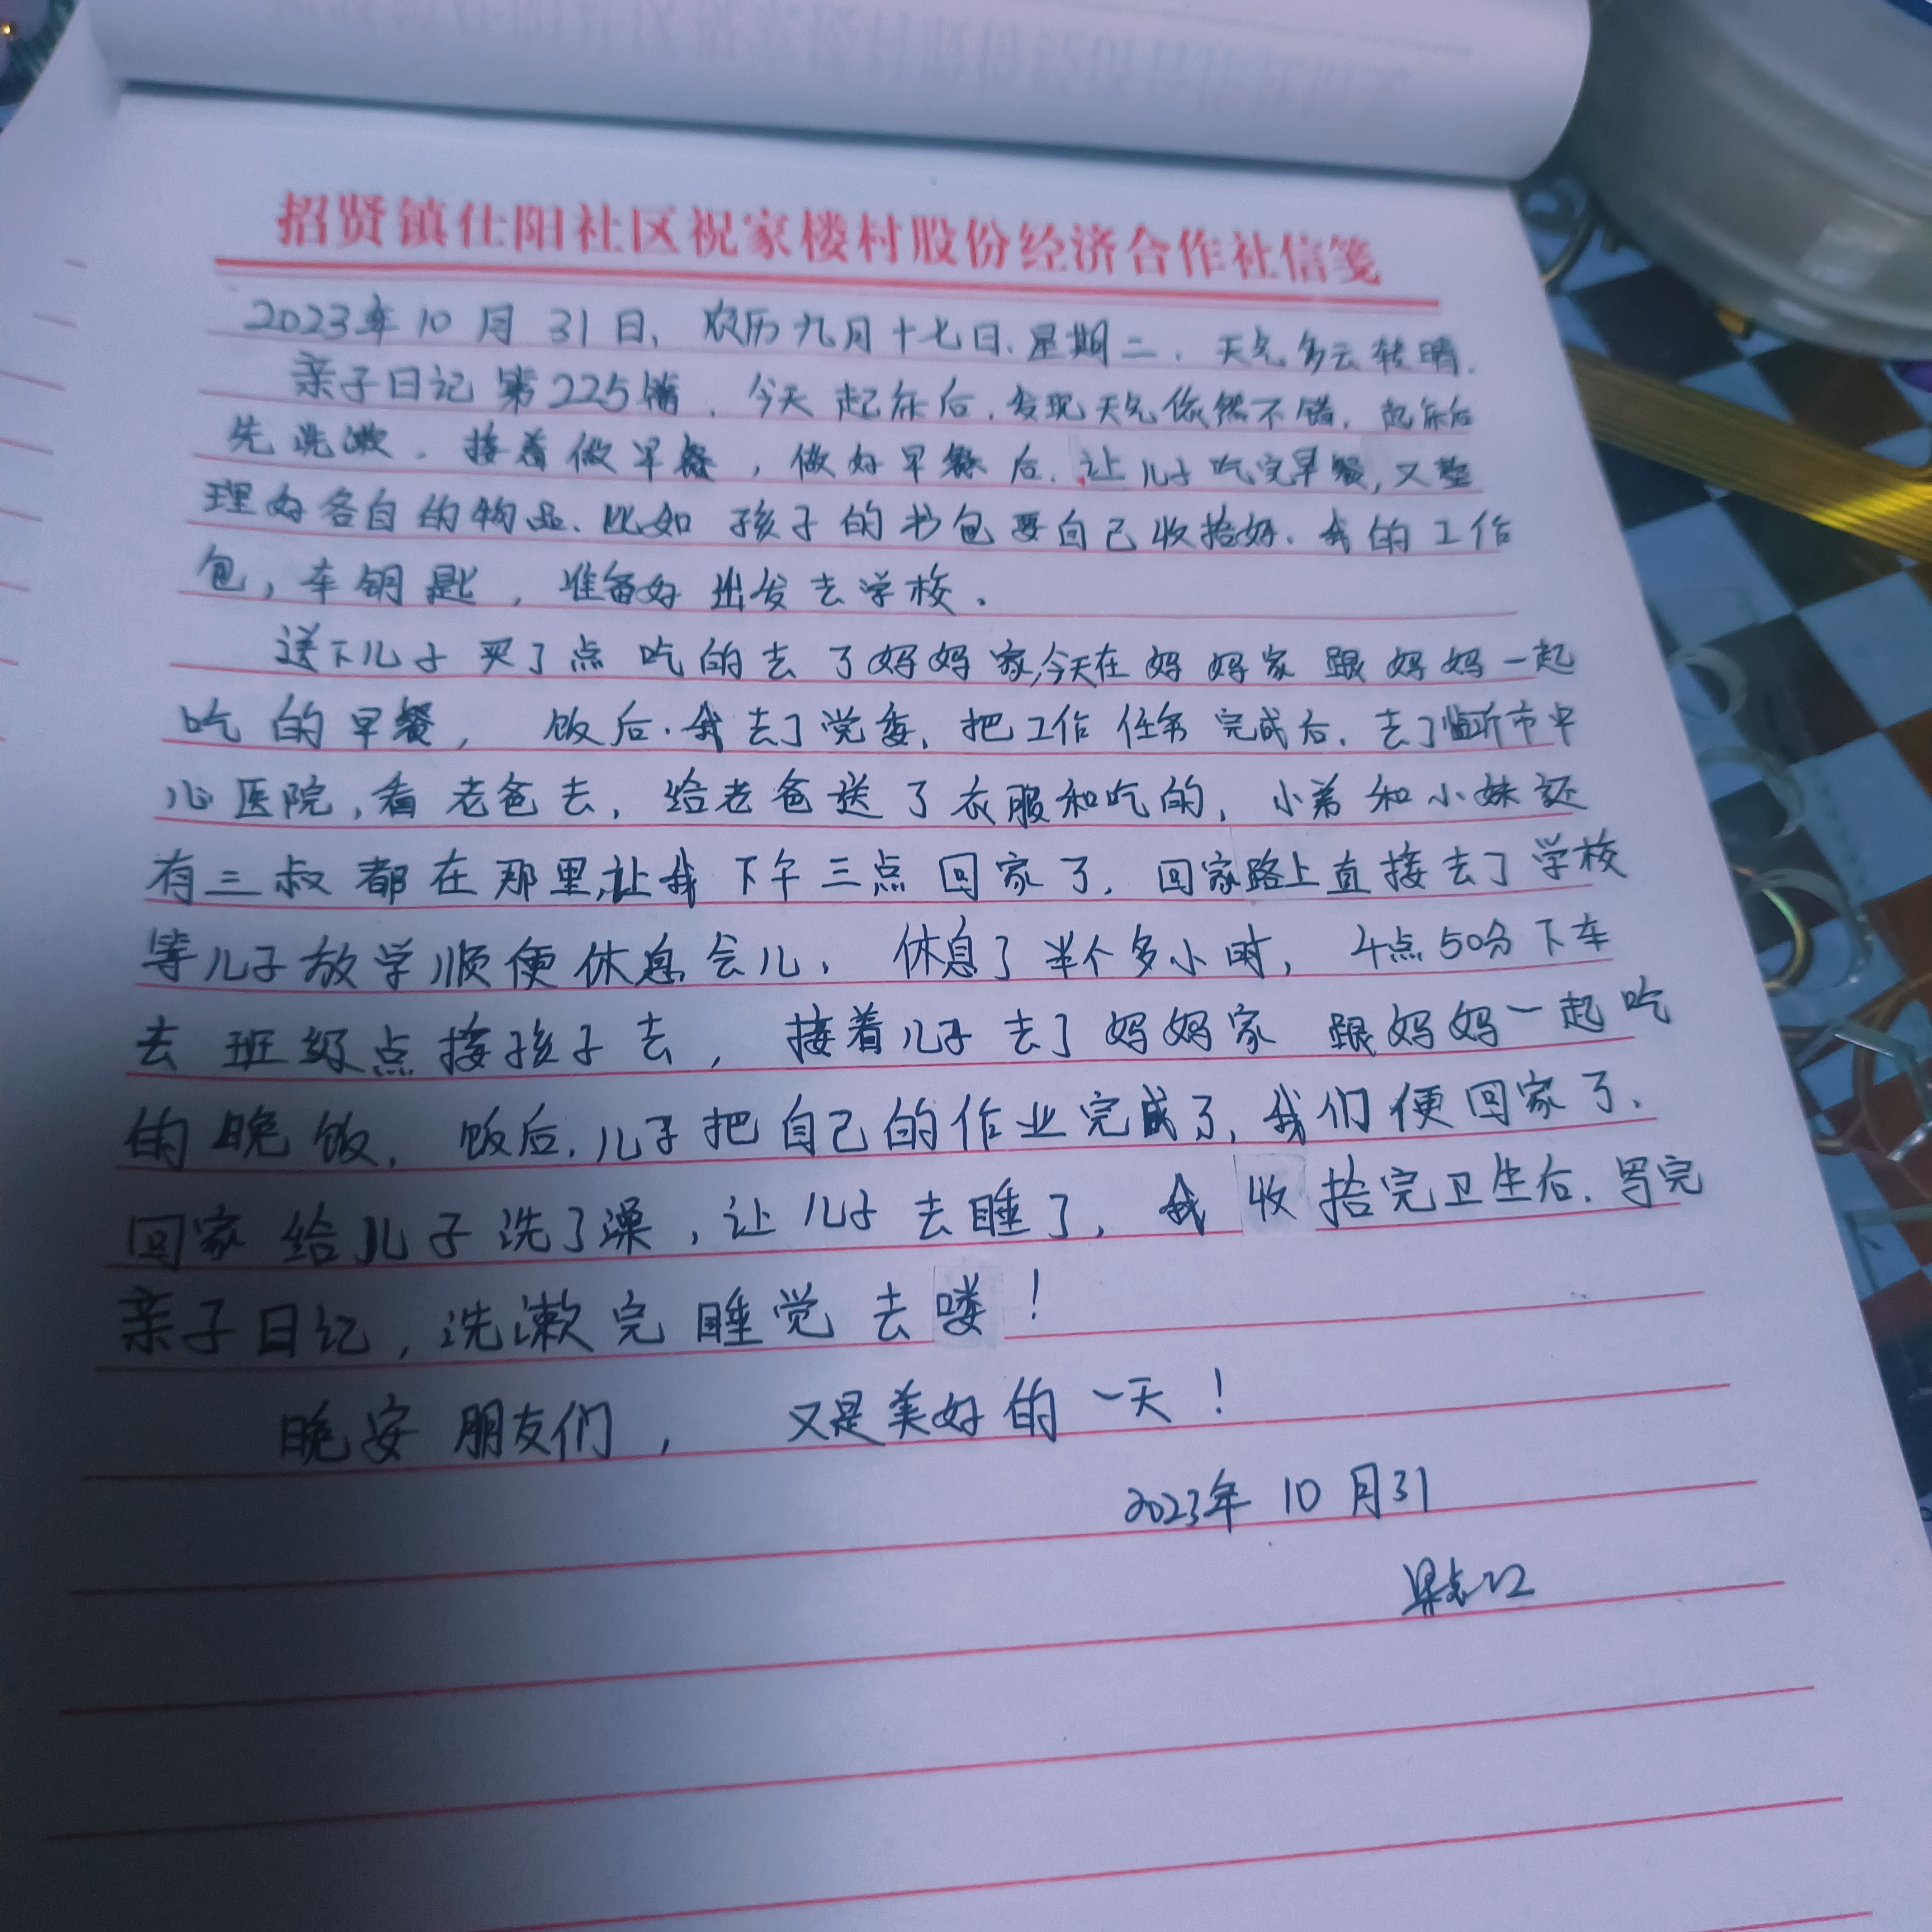 招贤镇仕阳社区祝家楼村股份经济合作社信笺
2023年10月31日，农历九月十七日.星期二．天气多云转晴．
亲子日记第225篇．今天起床后．发现天气依然不错．起床后
先洗漱．接着做早餐，做好早餐后．让儿子吃完早餐，又整
理好各自的物品．比如孩子的书包要自己收拾好．我的工作
包，车钥匙，准备好出发去学校．
送下儿子买了点吃的去了妈妈家,今天在妈妈家跟妈妈一起
吃的早餐，饭后．我去了党委，把工作任务完成后．去了临沂市中
心医院，看老爸去，给老爸送了衣服和吃的，小弟和小妹还
有三叔都在那里,让我下午三点回家了．回家路上直接去了学校
等儿子放学顺便休息会儿，休息了半个多小时，4点50分下车
去班级点接孩子去，接着儿子去了妈妈家跟妈妈一起吃
的晚饭．饭后.儿子把自己的作业完成了,我们便回家了．
回家给儿子洗了澡，让儿子去睡了，我收拾完卫生后．写完
亲子日记，洗漱完睡觉去喽！
晚安朋友们，又是美好的一天！
2023年10月31